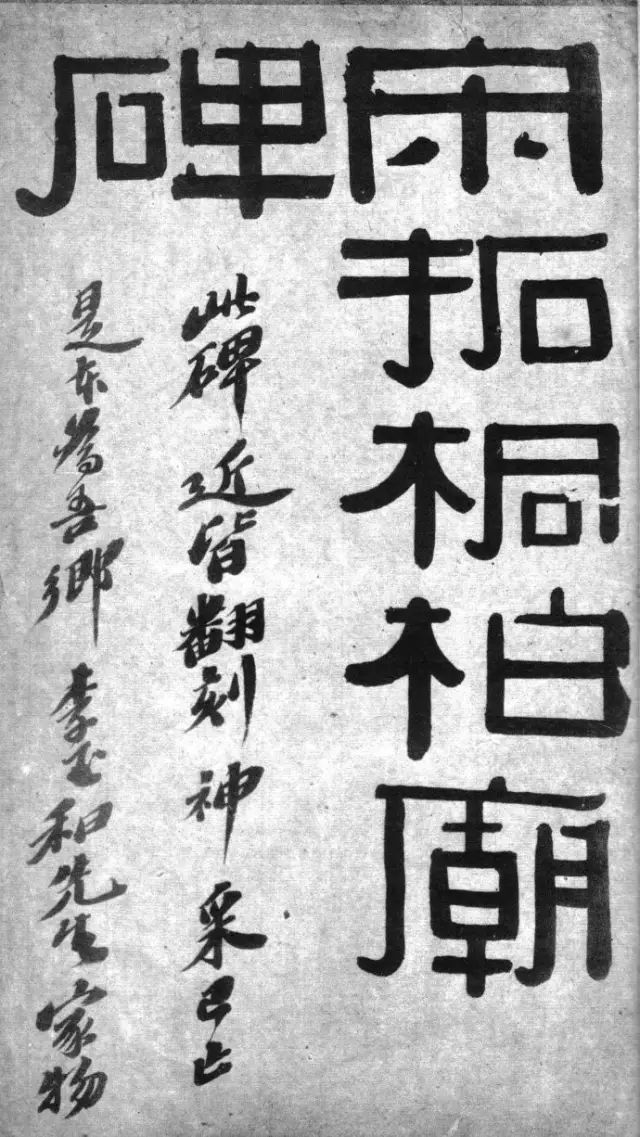 宋拓桐柏廟
碑
此碑近皆翻刻神采已亡
是本為吾鄉李玉和先生家物